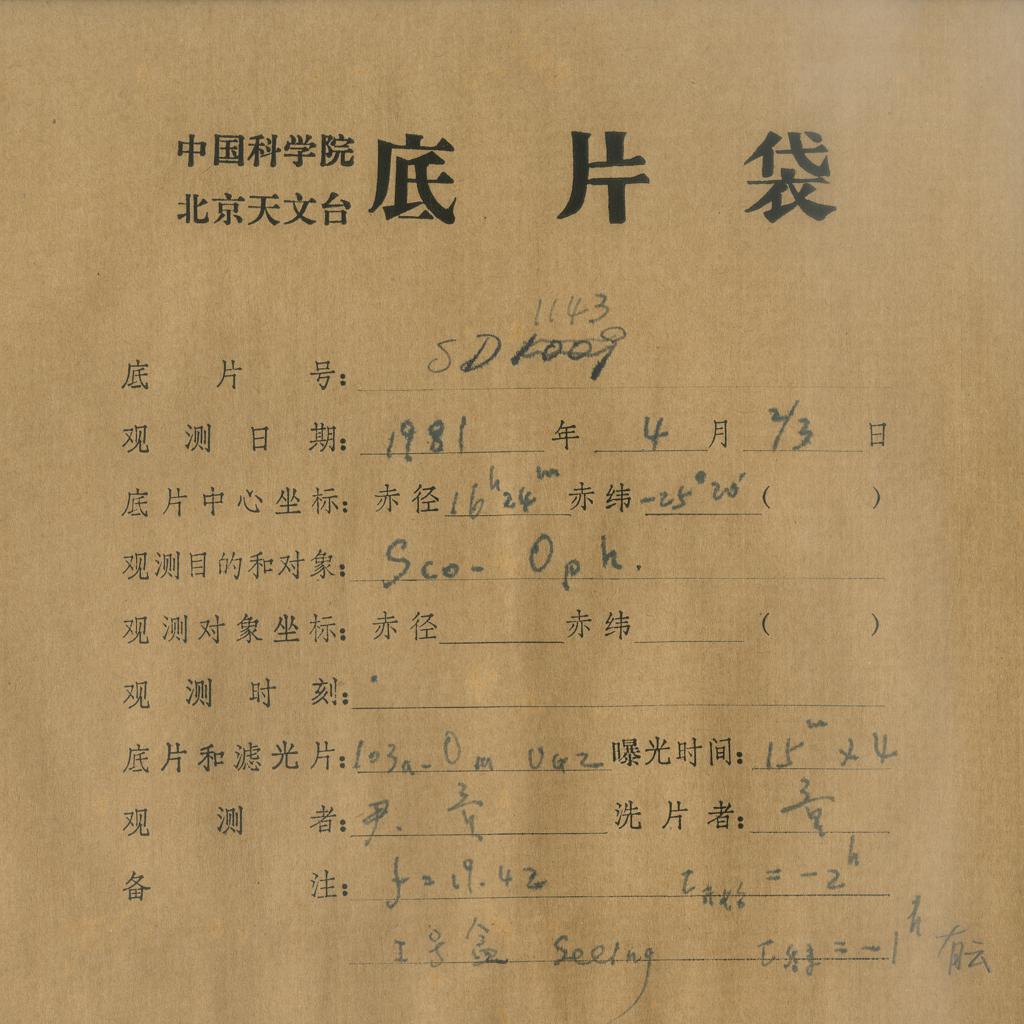 中国科学院
北京天文台 底片袋
1143
底片号: SD 1009
观测日期: 1981 年 4 月 2/3 日
底片中心坐标: 赤径 16h24m 赤纬 -25°20′ ( )
观测目的和对象: Sco- Oph.
观测对象坐标: 赤径 赤纬 ( )
观测时刻:
底片和滤光片: 103a-O UG2 曝光时间: 15m×4
观测者: 尹. 洗片者:
备注: f=19.42 t开始=-2h
I号盒 Seeing t结束=-1h 有云